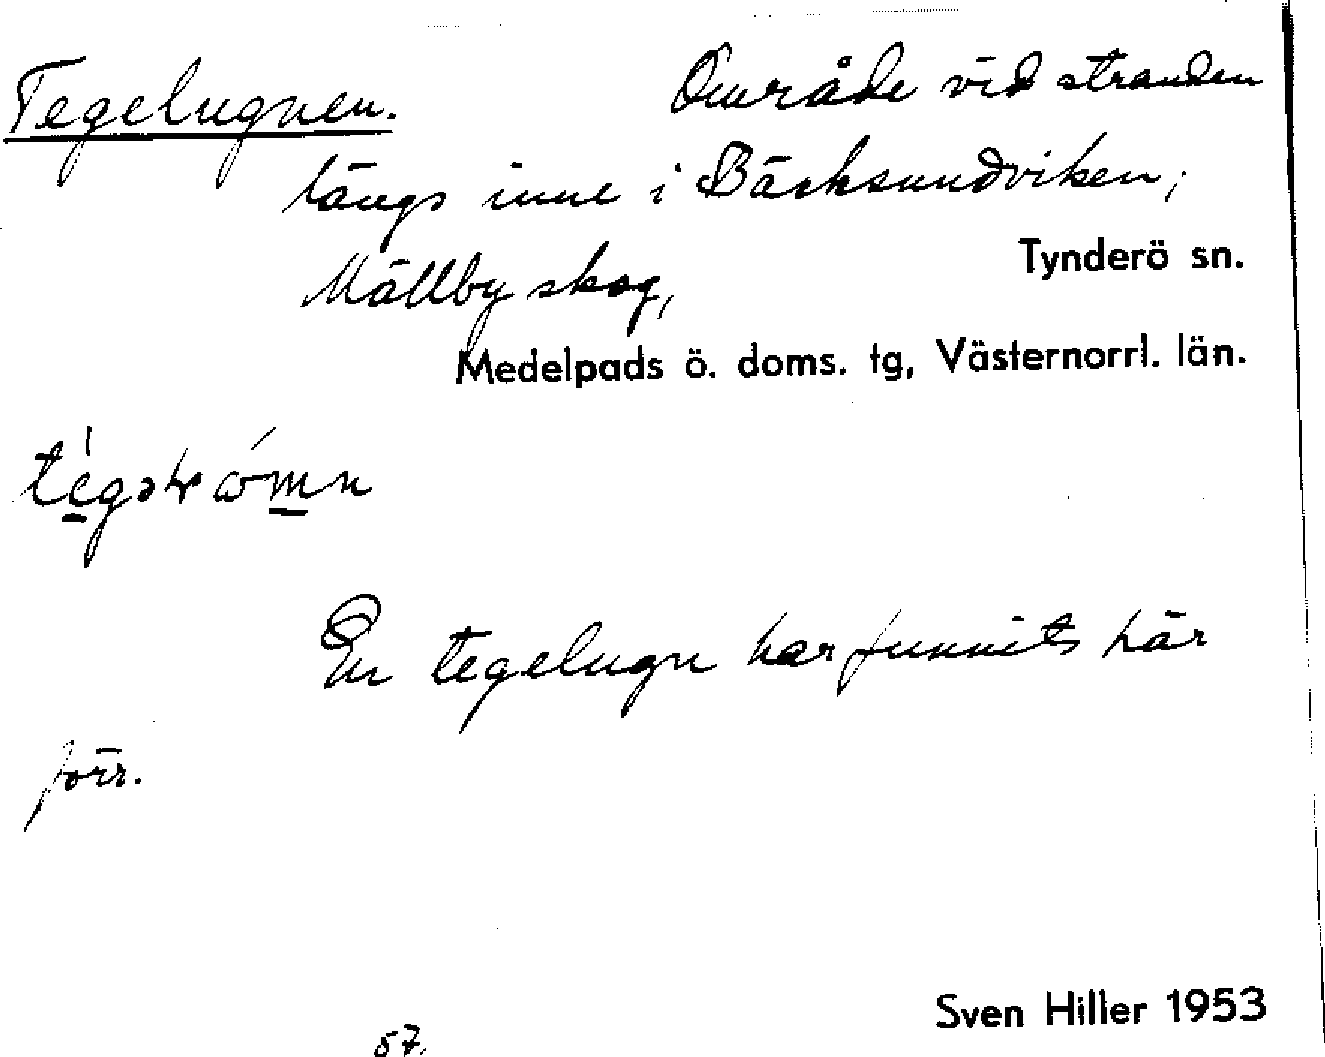 Tegelugnen. Område vid stranden
längs inne i Bäcksundviken;
Mällby skog, Tynderö sn.
Medelpads ö. doms. tg, Västernorrl. län.
En tegelugn har funnits här
förr.
Sven Hiller 1953
57.